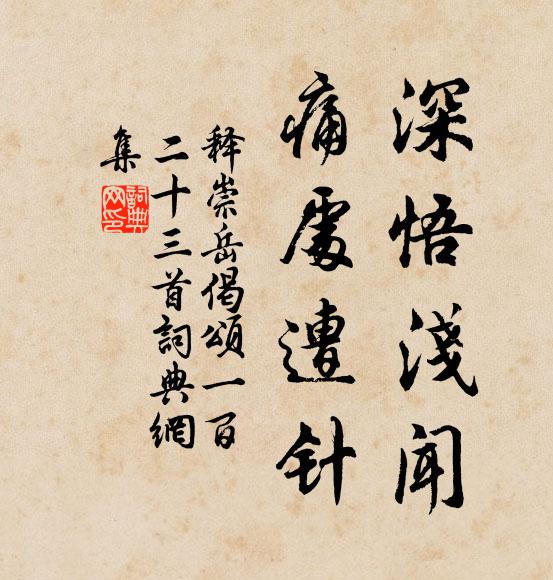 深悟淺闻
痛處遭针
释崇岳偈頌一百
二十三首詞典網
集
詞典网印